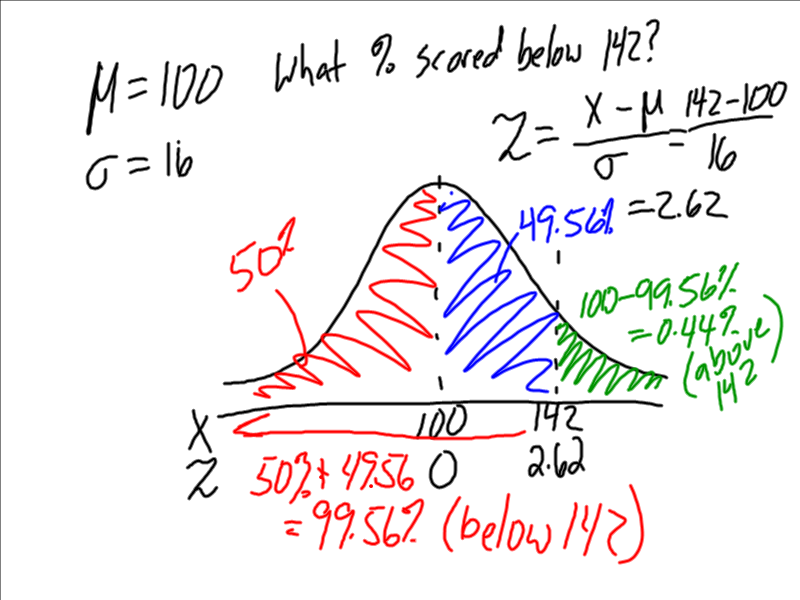 μ = 100
σ = 16
What % scored below 142?
Z = X - μ / σ = 142-100 / 16
= 2.62
50%
49.56%
100-99.56%
= 0.44%
(above
142)
X 100 142
Z 0 2.62
50% + 49.56
= 99.56% (below 142)